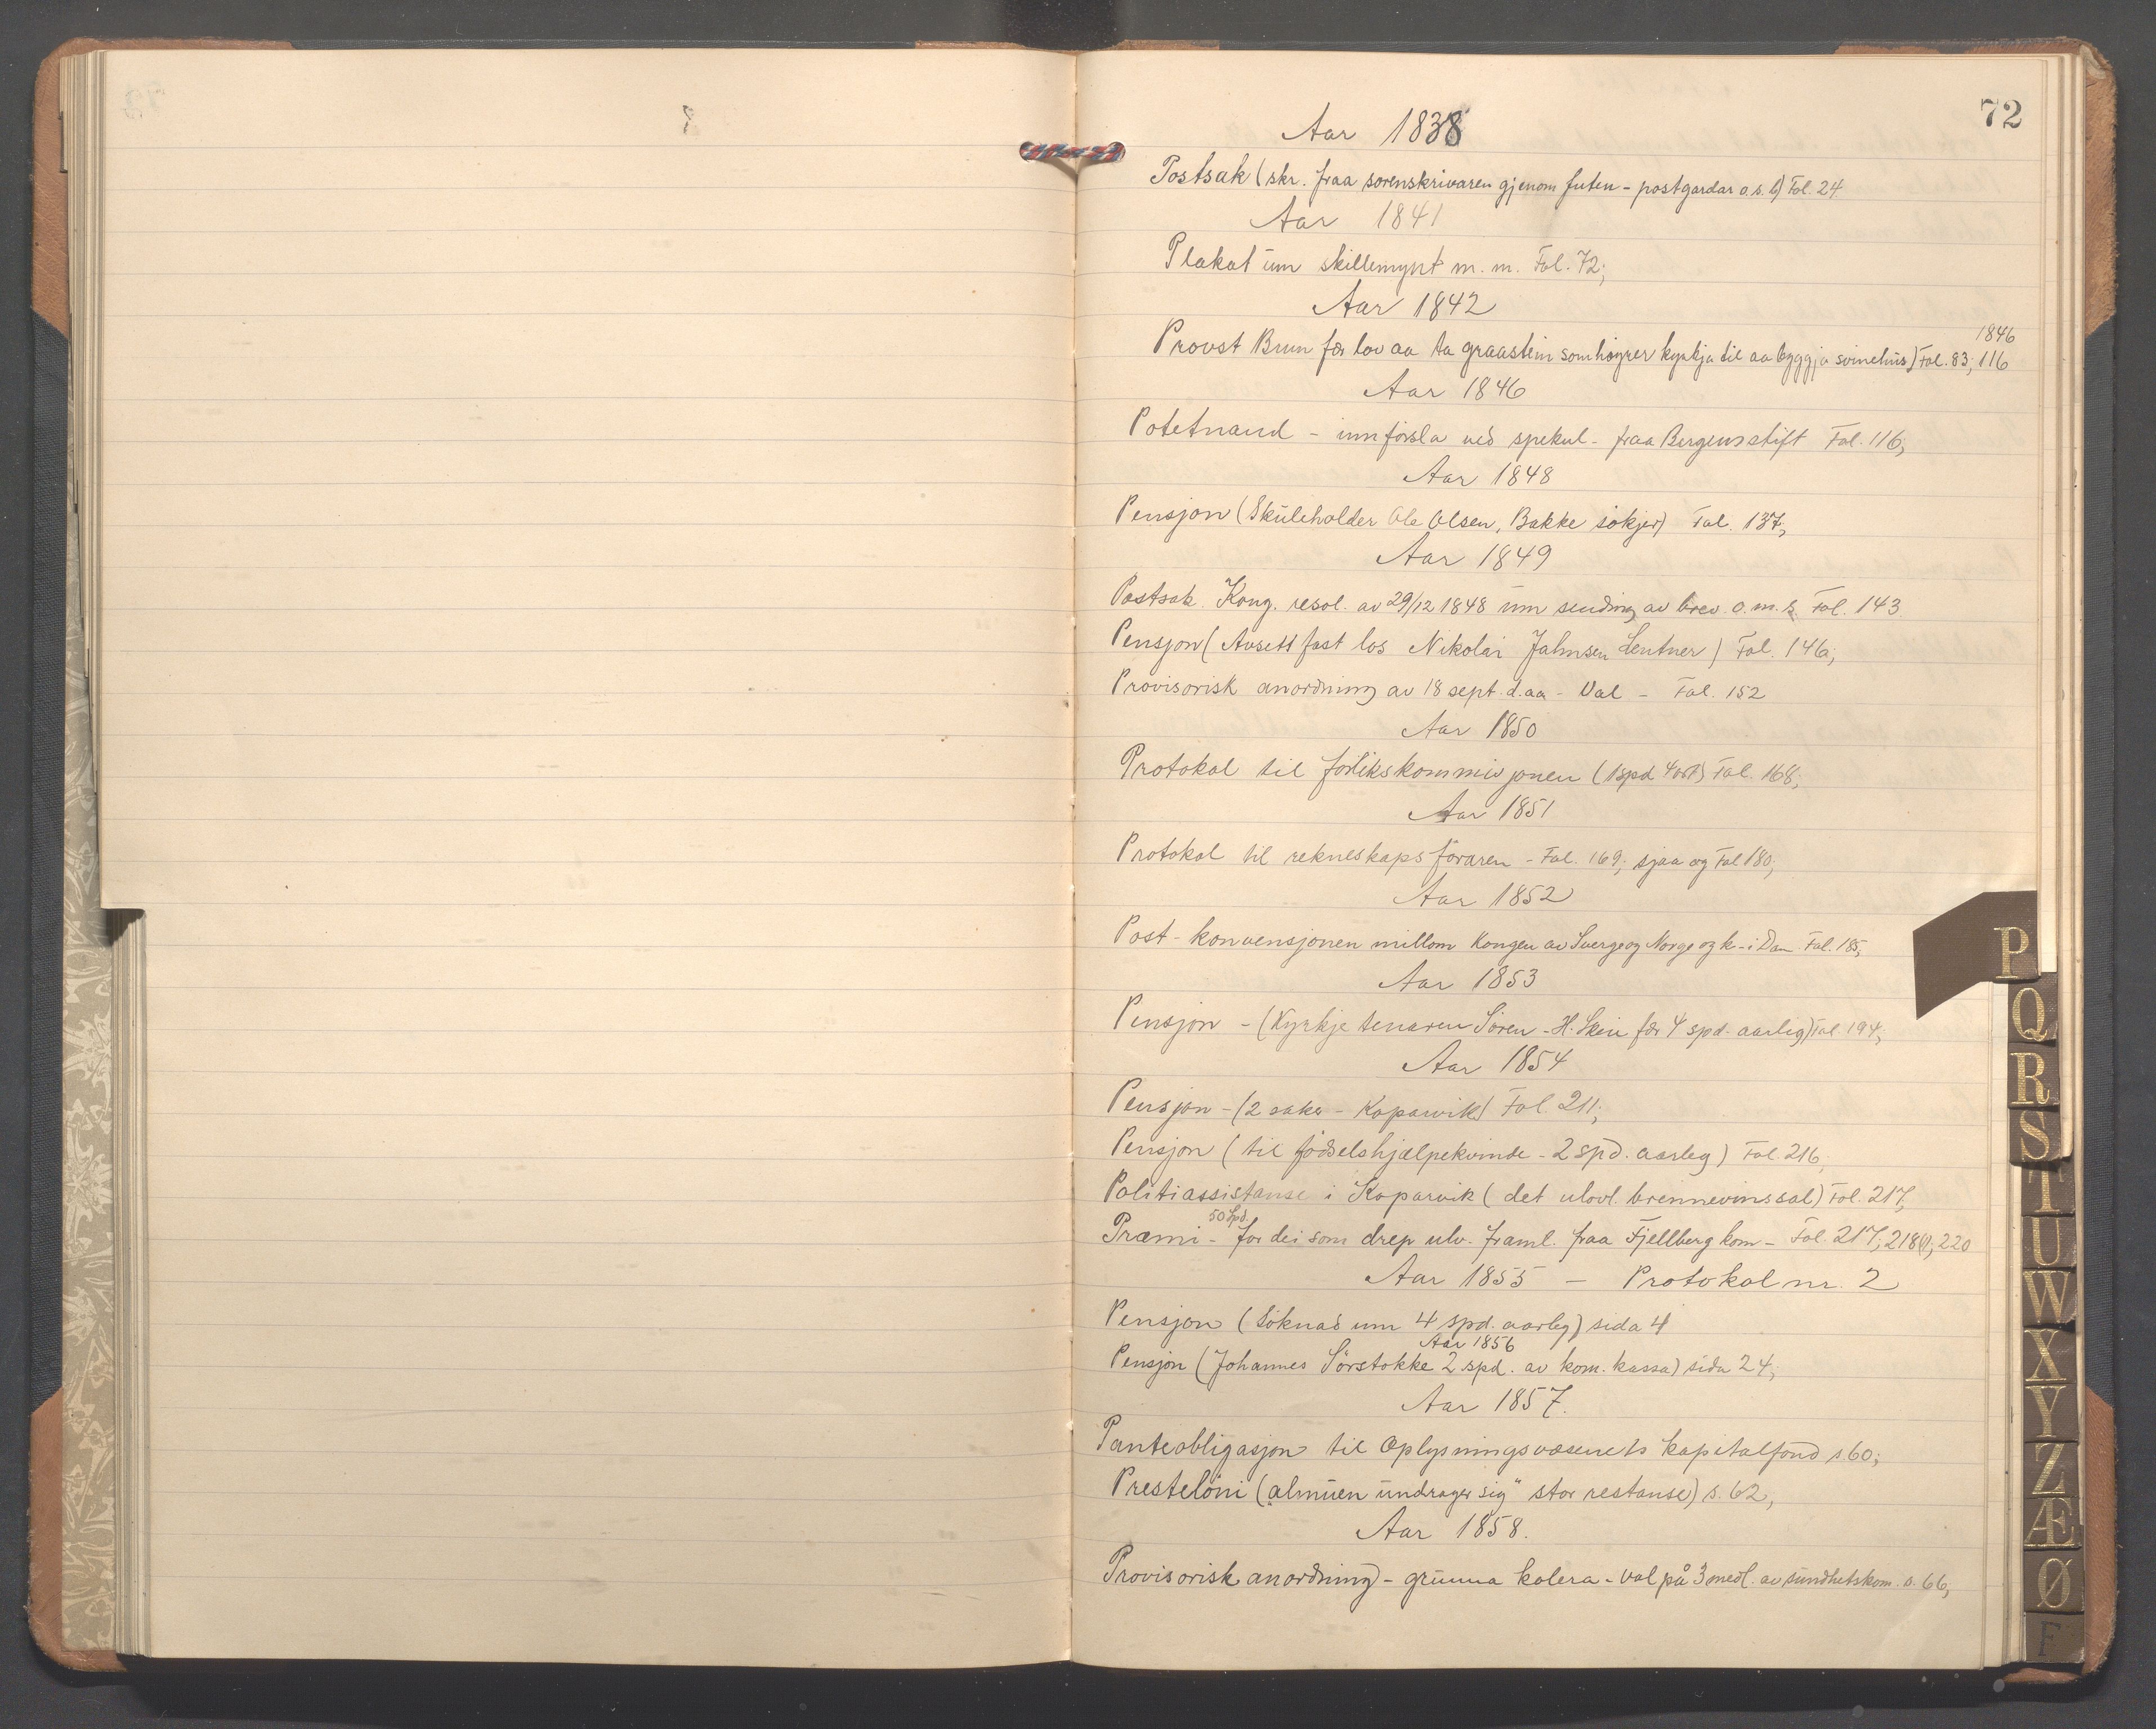 72
Aar 1838
Postsak (skr. fraa sorenskrivaren gjenom futen - postgardar o.s.b) Fol. 24.
Aar 1841
Plakat um skillemynt m. m. Fol. 72;
Aar 1842
1846
Provst Brun fær lov aa ta graastein som høyrer kyrkja til aa byggja svinehus) Fol. 83; 116
Aar 1846
Potetnaud - innførsla ved spekul - fraa Bergens stift Fol. 116;
Aar 1848
Pensjon (Skuleholder Ole Olsen, Bakke søkjer) Fol. 137;
Aar 1849
Postsak. Kong. resol. av 29/12 1848 um sending av brev o. m. k. Fol. 143
Pensjon (Avsett fast los Nikolai Jahnsen Lentner) Fol. 146a;
Provisorisk anordning av 18 sept. d. aa - Val - Fol. 152
Aar 1850
Protokol til forlikskommisjonen (1 spd 4 ort) Fol. 168;
Aar 1851
Protokol til rekneskapsføraren - Fol. 169; sjaa og Fol 180;
Aar 1852
Post-konvensjonen millom Kongen av Sverge og Norge og k - i Dan. Fol. 185;
Aar 1853
Pensjon - (Kyrkjetenaren Sören - H. Skeie fær 4 spd. aarlig) Fol. 194;
Aar 1854
Pensjon - (2 saker - Kopervik) Fol 211;
Pensjon (til fødselshjælpekvinde - 2 spd. aarleg) Fol. 216;
Politiassistanse i Kopervik (det ulovl. brennevinssal) Fol. 217;
50 Spd.
Præmi - for dei som drep ulv. framl. fraa Fjellberg kom - Fol. 217; 218(1); 220
Aar 1855 - Protokol nr. 2
Pensjon (Söknad um 4 spd. aarleg) sida 4
Aar 1856
Pensjon (Johannes Sörstokke 2 spd. av kom. kassa) sida 24;
Aar 1857.
Panteobligasjon til Oplysningsvæsenets kapitalfond s. 60;
Presteløni („almuen undrager sig" stor restanse) s. 62,
Aar 1858.
Provisorisk anordning - grunna kolera - val på 3 medl. av sundhetskom. s. 66,
P
Q
R
S
T
U
W
X
Y
Z
Æ
Ø
F